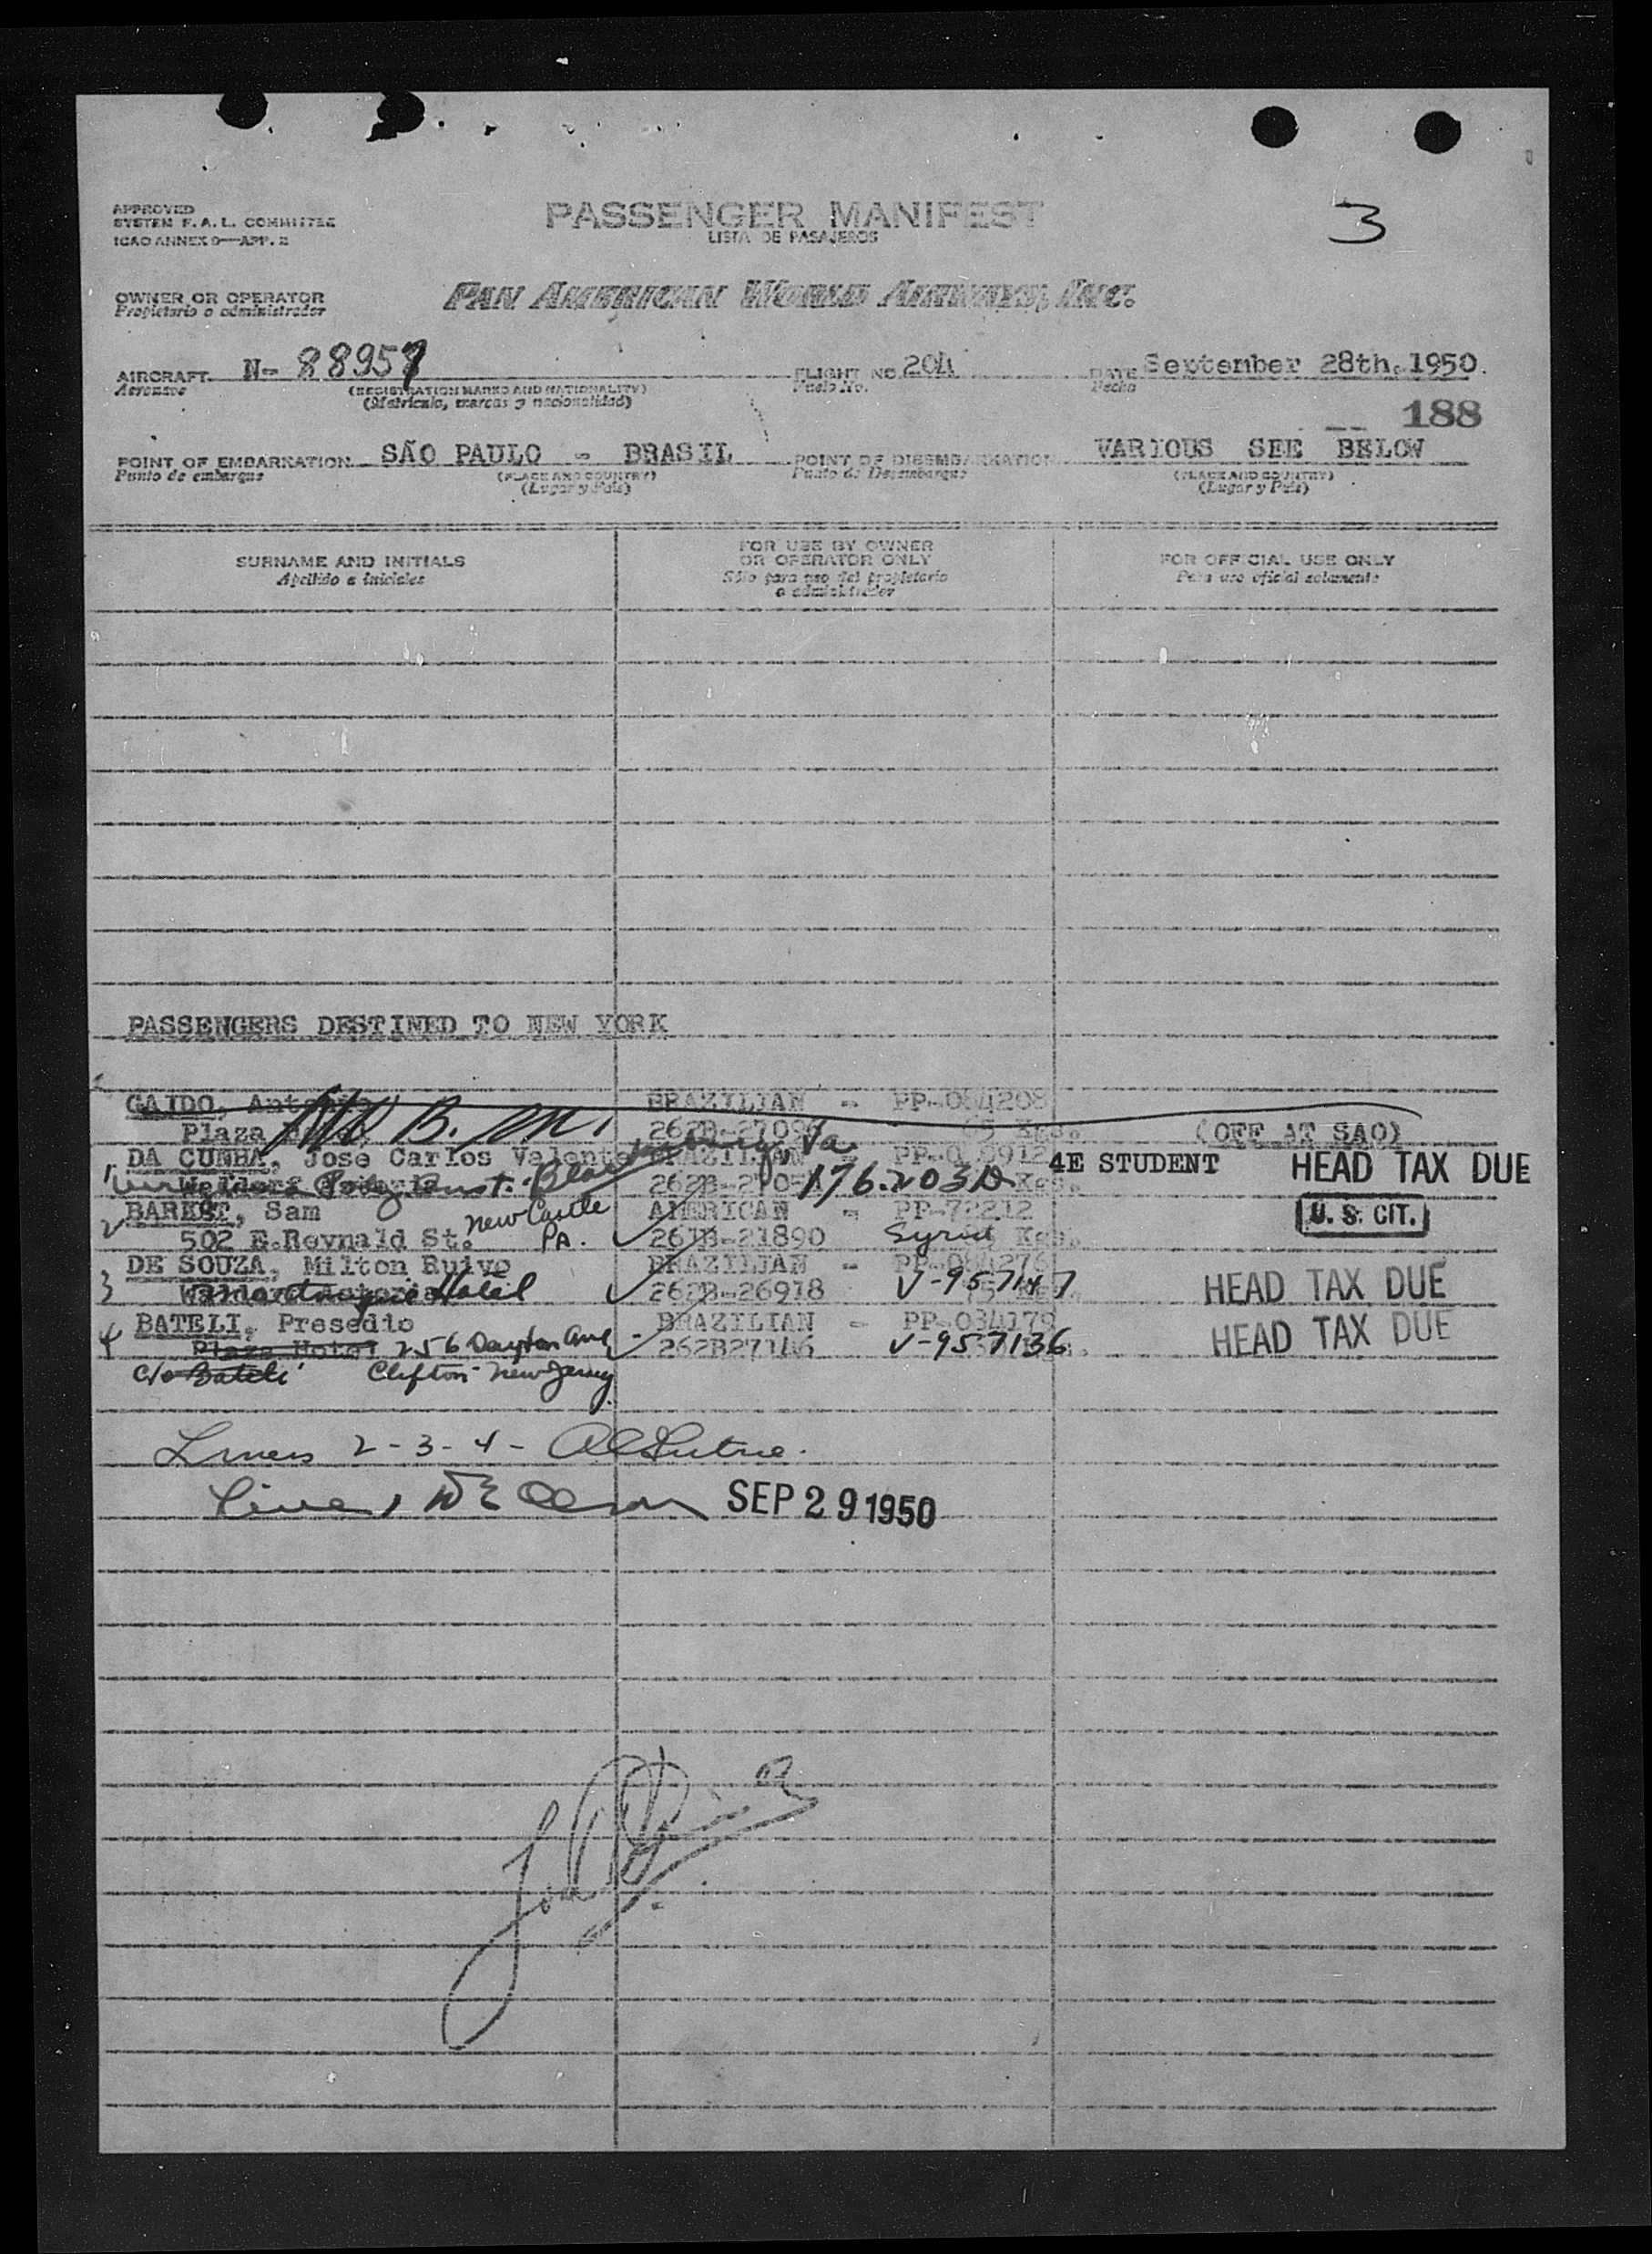 APPROVED
SYSTEM F. A. L. COMMITTEE
ICAO ANNEX 9—APP. 2
PASSENGER MANIFEST
LISTA DE PASAJEROS
3
OWNER OR OPERATOR
Propietario o administrador
PAN AMERICAN WORLD AIRWAYS, INC.
AIRCRAFT N- 88957 FLIGHT NO. 204 DATE September 28th. 1950.
Aeronave (REGISTRATION MARKS AND NATIONALITY) Vuelo No. Fecha
(Matrícula, marcas y nacionalidad)
188
POINT OF EMBARKATION SÃO PAULO - BRASIL POINT OF DISEMBARKATION VARIOUS SEE BELOW
Punto de embarque (PLACE AND COUNTRY) Punto de Desembarque (PLACE AND COUNTRY)
(Lugar y País) (Lugar y País)
SURNAME AND INITIALS FOR USE BY OWNER OR OPERATOR ONLY FOR OFFICIAL USE ONLY
Apellido e iniciales Sólo para uso del propietario o administrador Para uso oficial solamente
PASSENGERS DESTINED TO NEW YORK
GAIDO, BRAZILIAN - PP-084208
Plaza (OFF AT SAO)
1 DA CUNHA, Jose Carlos Valente BRAZILIAN - 4E STUDENT HEAD TAX DUE
Poly Inst. Va 176203
2 BARKET, Sam New Castle AMERICAN - PP-72212 U. S. CIT.
502 E.Reynald St. PA. 261B-21890
3 DE SOUZA, Milton Ruivo BRAZILIAN -
Hotel 262B-26978 V-957147 HEAD TAX DUE
4 BATELI, Presedio BRAZILIAN - PP-034179 HEAD TAX DUE
Plaza Hotel 256 Dayton Ave 262B27146 V-957136
c/o Bateli Clifton New Jersey
Lines 2-3-4-
Line 1 SEP 29 1950